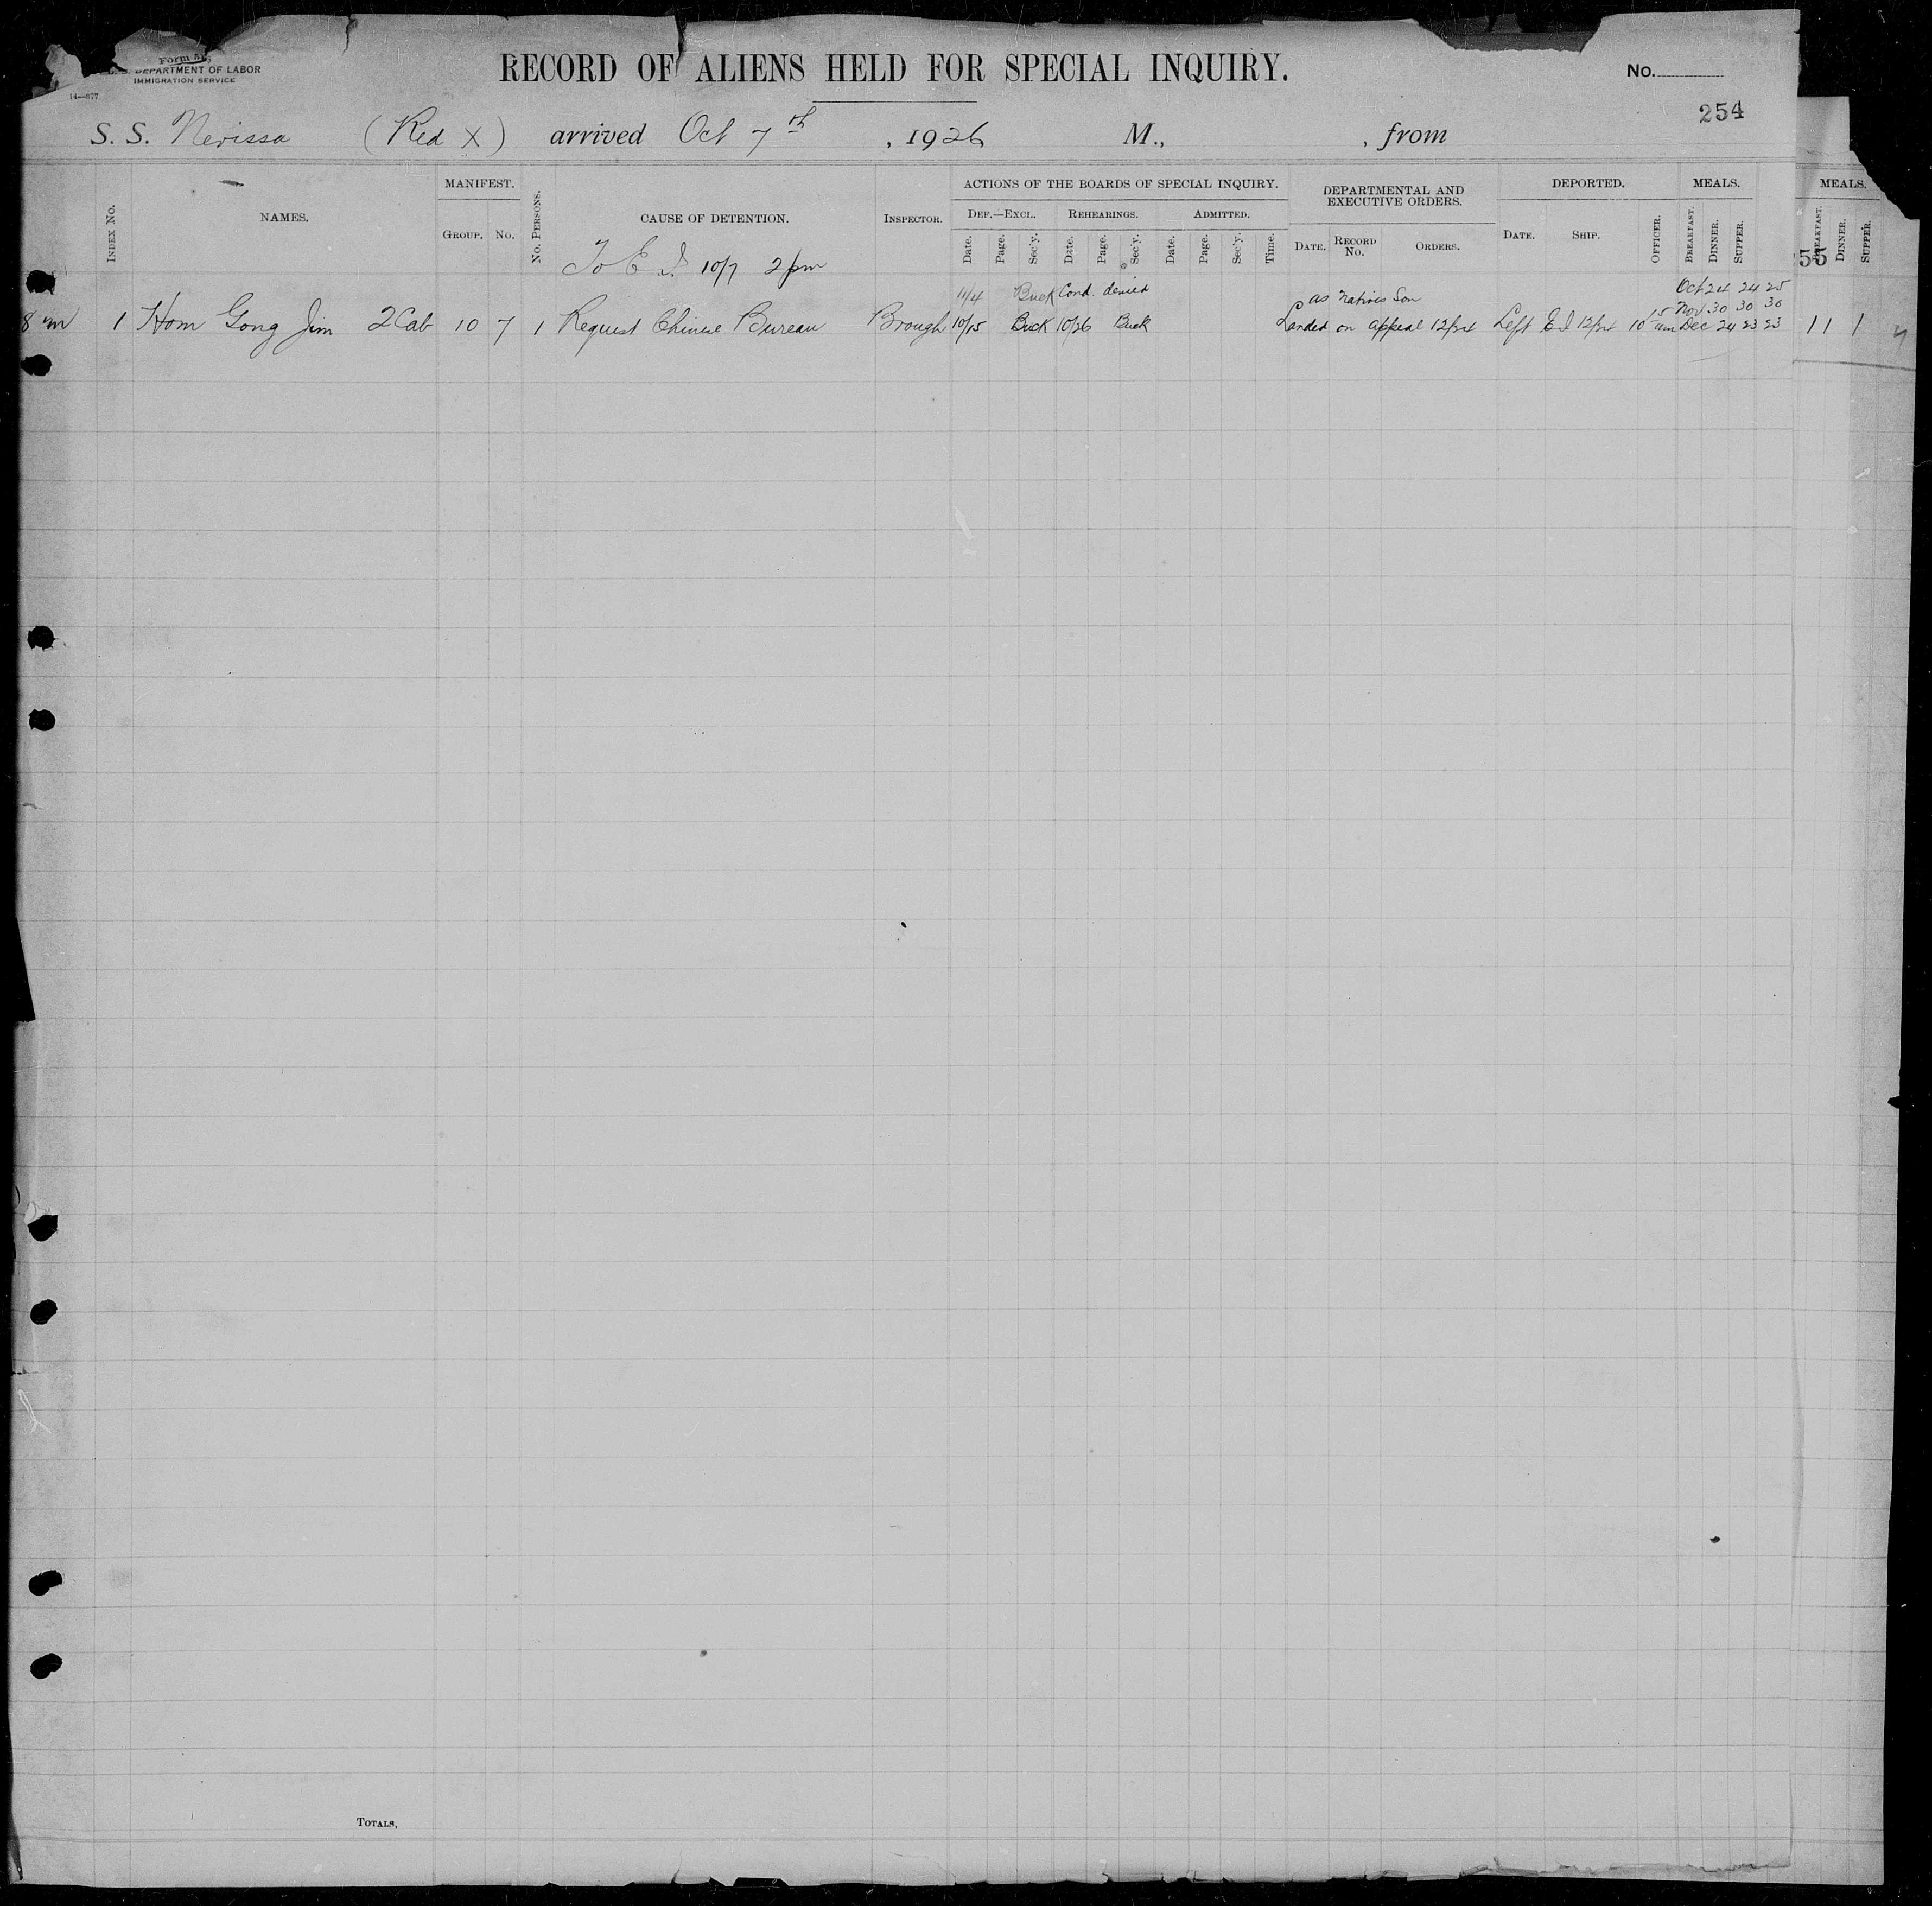 Form 5
DEPARTMENT OF LABOR
IMMIGRATION SERVICE
14—877
RECORD OF ALIENS HELD FOR SPECIAL INQUIRY.
No.
254
S. S. Nerissa (Red X) arrived Oct 7th, 1926 M., , from
INDEX No.
NAMES.
MANIFEST.
GROUP. No.
No. PERSONS.
CAUSE OF DETENTION.
INSPECTOR.
ACTIONS OF THE BOARDS OF SPECIAL INQUIRY.
DEF.—EXCL. REHEARINGS. ADMITTED.
Date. Page. Sec'y. Date. Page. Sec'y. Date. Page. Sec'y. Time.
DEPARTMENTAL AND
EXECUTIVE ORDERS.
DATE. RECORD No. ORDERS.
DEPORTED.
DATE. SHIP. OFFICER.
MEALS.
BREAKFAST. DINNER. SUPPER.
MEALS.
BREAKFAST. DINNER. SUPPER.
55
To E I 10/7 2 pm
11/4 Buck Cond. denied as natives Son Oct 24 24 25
Nov 30 30 30
8 m 1 Hom Gong Jim 2 Cab 10 7 1 Request Chinese Bureau Brough 10/15 Buck 10/26 Buck Landed on appeal 12/24 Left E I 12/24 10 15 am Dec 24 23 23 1 1 1
TOTALS,